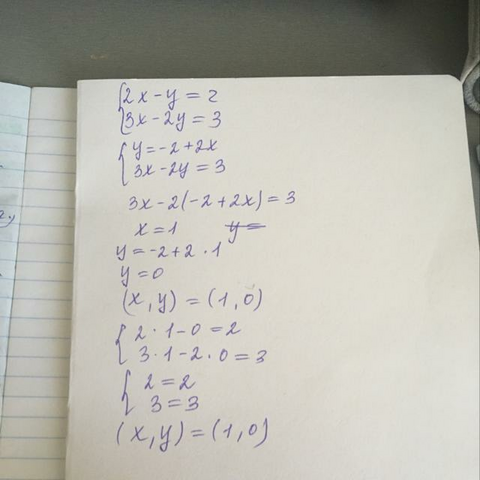 {2x-y=2
{3x-2y=3
{y=-2+2x
{3x-2y=3
3x-2(-2+2x)=3
x=1 y=
y=-2+2·1
y=0
(x,y)=(1,0)
{2·1-0=2
{3·1-2·0=3
{2=2
{3=3
(x,y)=(1,0)